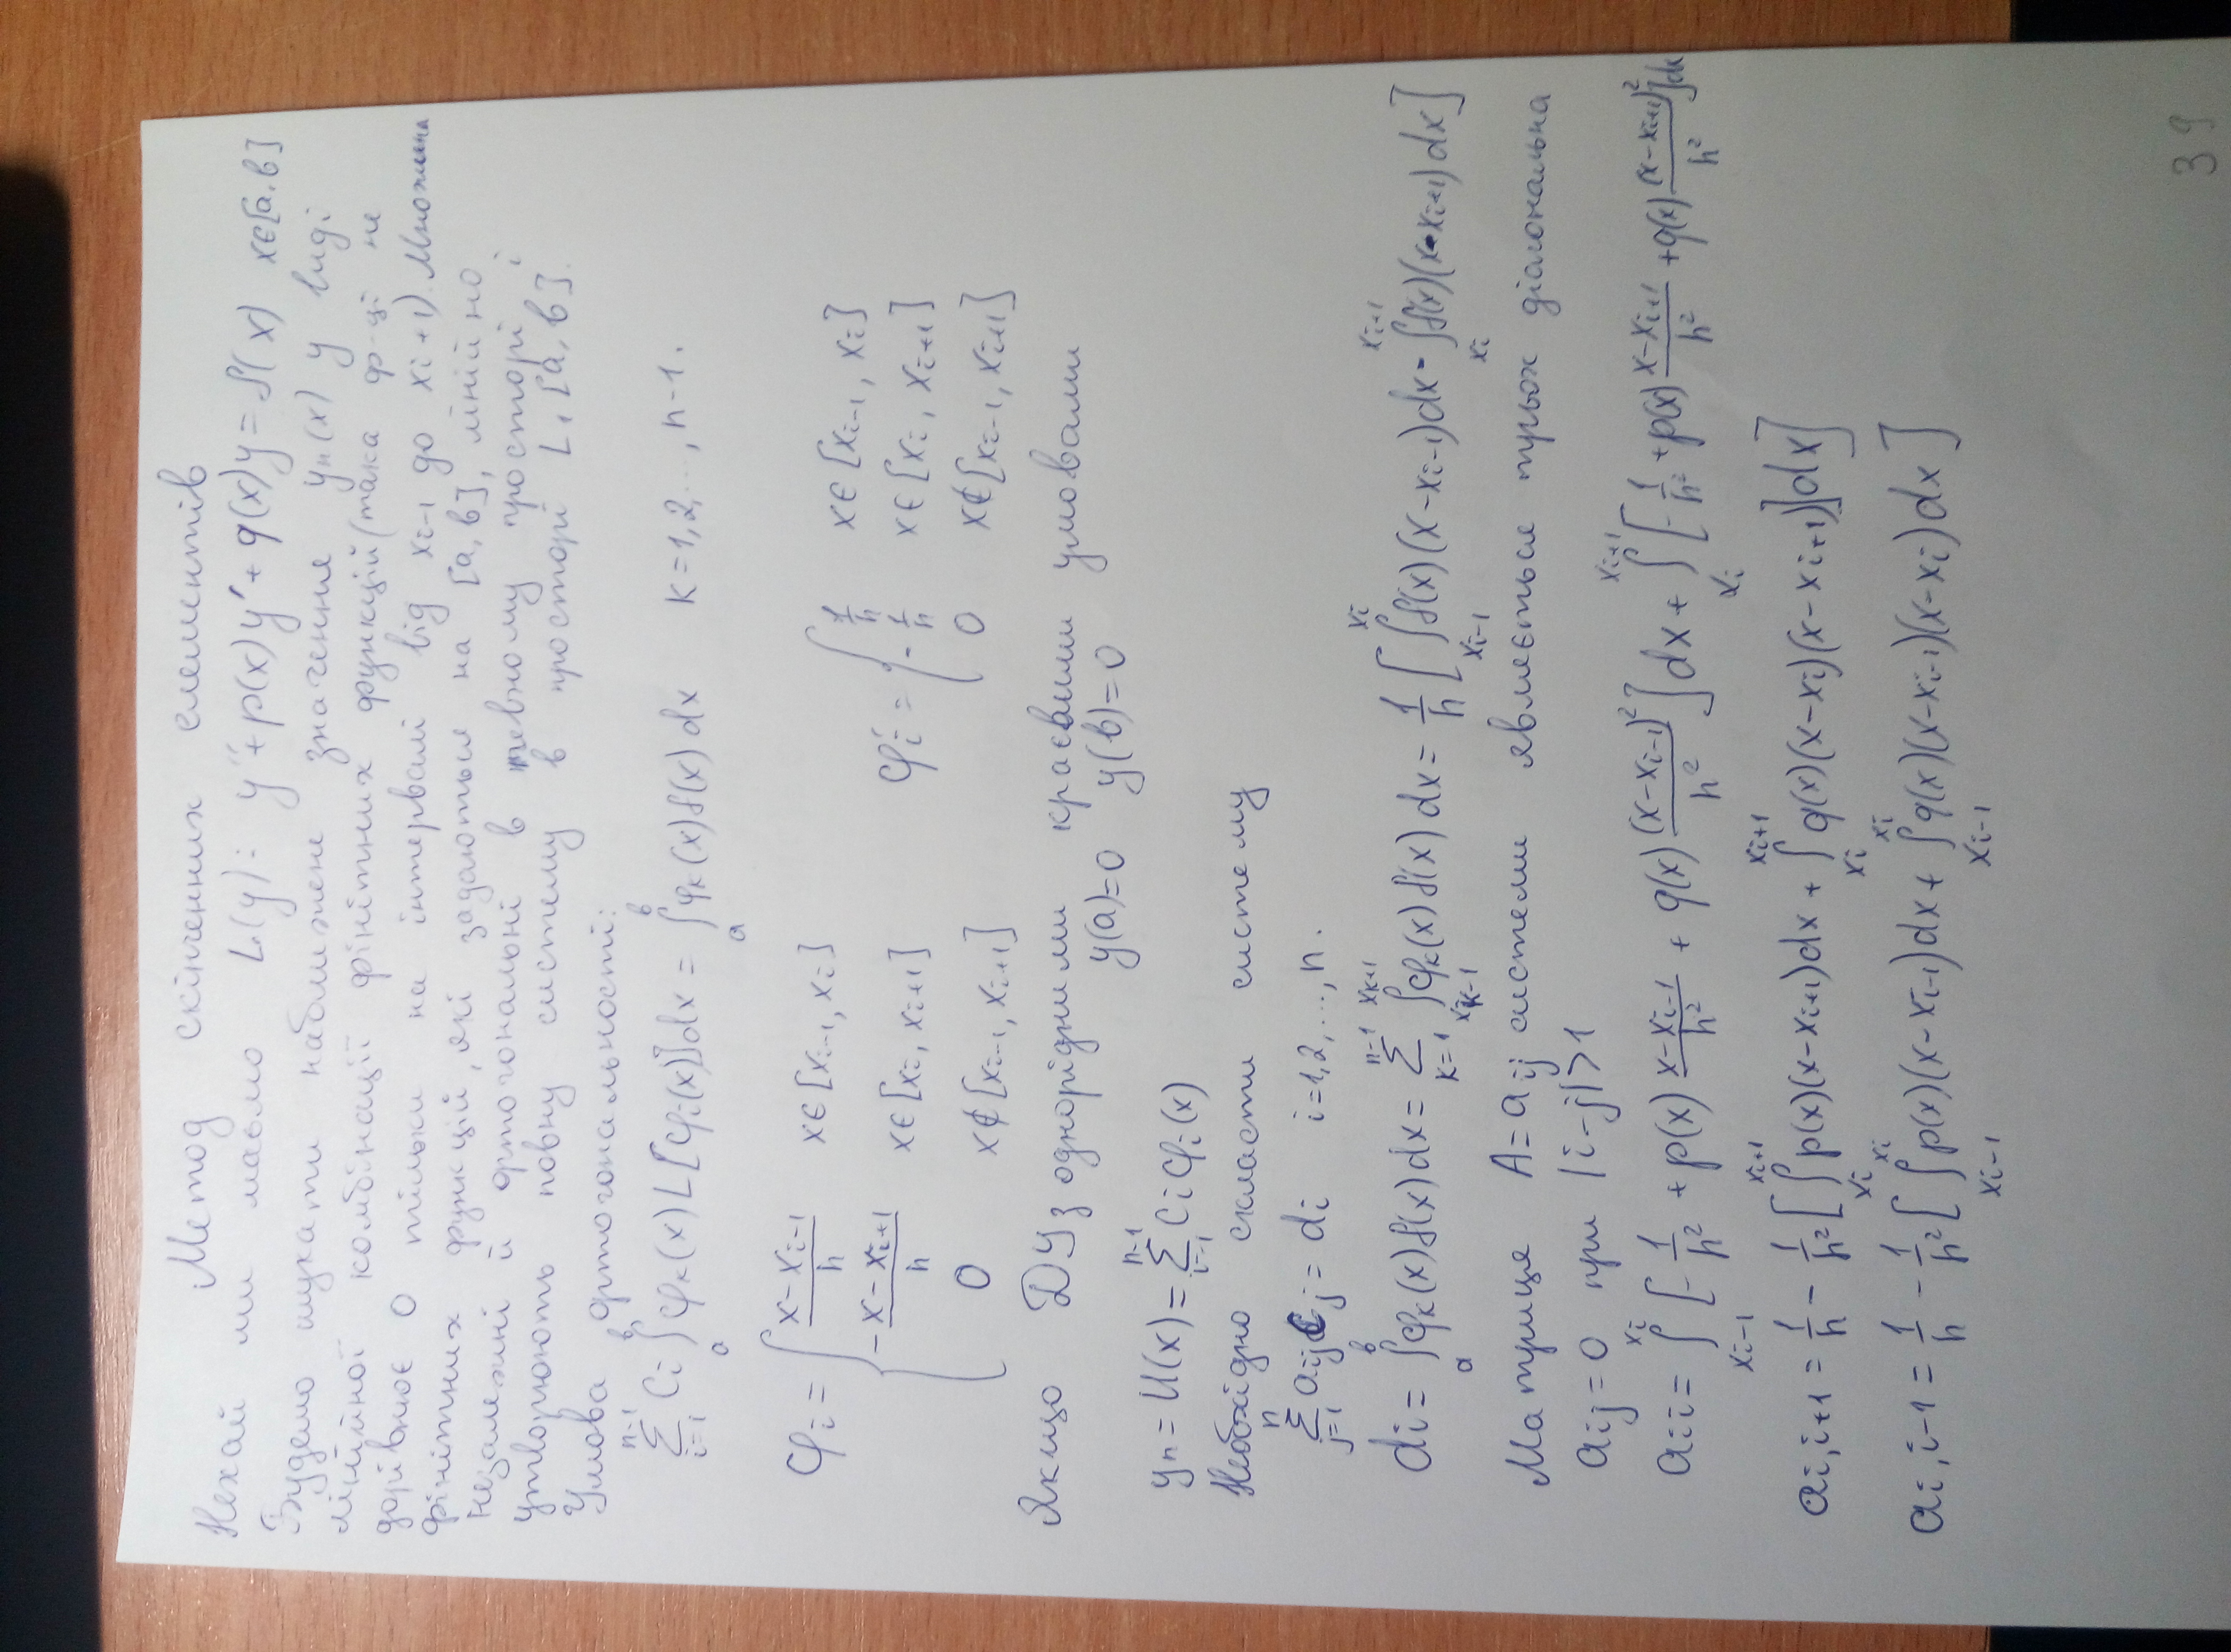 Метод скінченних елементів
Нехай ми маємо L(y): y'' + p(x)y' + q(x)y = f(x) x∈[a,b]
Будемо шукати наближене значення yₙ(x) у виді
лінійної комбінації фінітних функцій (така ф-ці не
дорівнює 0 тільки на інтервалі від xᵢ₋₁ до xᵢ₊₁). Множина
фінітних функцій, які задаються на [a,b], лінійно
незалежні й ортогональні в певному просторі і
утворюють повну систему в просторі L, [a,b].
Умова ортогональності:
∑_{i=1}^{n-1} Cᵢ ∫_a^b φₖ(x) L[φᵢ(x)]dx = ∫_a^b φₖ(x)f(x)dx k=1,2,..., n-1.
φᵢ = { (x-xᵢ₋₁)/h x∈[xᵢ₋₁, xᵢ] φᵢ' = { 1/h x∈[xᵢ₋₁, xᵢ]
-(x-xᵢ₊₁)/h x∈[xᵢ, xᵢ₊₁] -1/h x∈[xᵢ, xᵢ₊₁]
0 x∉[xᵢ₋₁, xᵢ₊₁] 0 x∉[xᵢ₋₁, xᵢ₊₁]
Якщо ДУ з однорідними краєвими умовами
y(a)=0 y(b)=0
yₙ = U(x) = ∑_{i=1}^{n-1} Cᵢφᵢ(x)
Необхідно скласти систему
∑_{j=1}^{n} aᵢⱼCⱼ = dᵢ i=1,2,...,n.
dᵢ = ∫_a^b φₖ(x)f(x)dx = ∑_{k=1}^{n-1} ∫_{xₖ₋₁}^{xₖ₊₁} φₖ(x)f(x)dx = 1/h [∫_{xᵢ₋₁}^{xᵢ} f(x)(x-xᵢ₋₁)dx - ∫_{xᵢ}^{xᵢ₊₁} f(x)(x-xᵢ₊₁)dx]
Матриця A=aᵢⱼ системи являється трьох діагональна
aᵢⱼ=0 при |i-j|>1
aᵢᵢ = ∫_{xᵢ₋₁}^{xᵢ} [-1/h² + p(x) (x-xᵢ₋₁)/h² + q(x) (x-xᵢ₋₁)²/h²]dx + ∫_{xᵢ}^{xᵢ₊₁} [-1/h² + p(x) (x-xᵢ₊₁)/h² + q(x) (x-xᵢ₊₁)²/h²]dx
aᵢ,ᵢ₊₁ = 1/h - 1/h² [∫_{xᵢ}^{xᵢ₊₁} p(x)(x-xᵢ₊₁)dx + ∫_{xᵢ}^{xᵢ₊₁} q(x)(x-xᵢ)(x-xᵢ₊₁)]dx]
aᵢ,ᵢ₋₁ = 1/h - 1/h² [∫_{xᵢ₋₁}^{xᵢ} p(x)(x-xᵢ₋₁)dx + ∫_{xᵢ₋₁}^{xᵢ} q(x)(x-xᵢ₋₁)(x-xᵢ)dx]
39